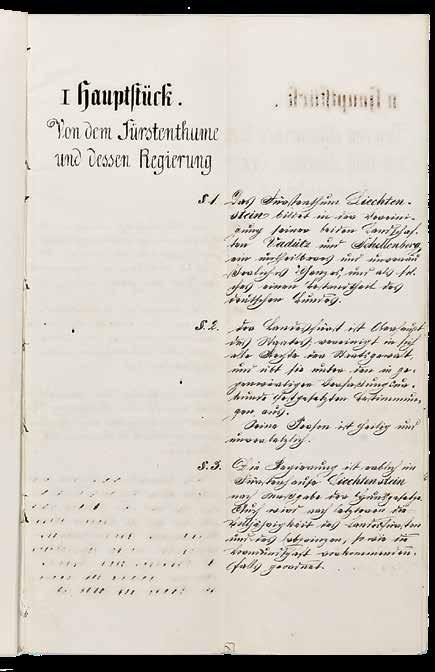 I Hauptstück.
Von dem Fürstenthume
und dessen Regierung
§. 1. Das Fürstenthum Liechten-
stein bildet in der Vereini-
gung seiner beiden Landschaf-
ten Vadutz und Schellenberg,
ein untheilbares und unveräu-
ßerliches Ganzes, und als sol-
ches einen Bestandtheil des
deutschen Bundes.
§. 2. Der Landesfürst ist Oberhaupt
des Staates, vereinigt in sich
alle Rechte der Staatsgewalt,
und übt sie unter den in ge-
genwärtiger Verfassungsur-
kunde festgesetzten Bestimmun-
gen aus.
Seine Person ist heilig und
unverletzlich.
§. 3. Die Regierung ist erblich im
Fürstenhause Liechtenstein
nach Maßgabe der Hausgesetze.
Auch wird nach letzteren die
Volljährigkeit des Landesfürsten
und des Erbprinzen, so wie die
Vormundschaft vorkommenden-
falls geordnet.